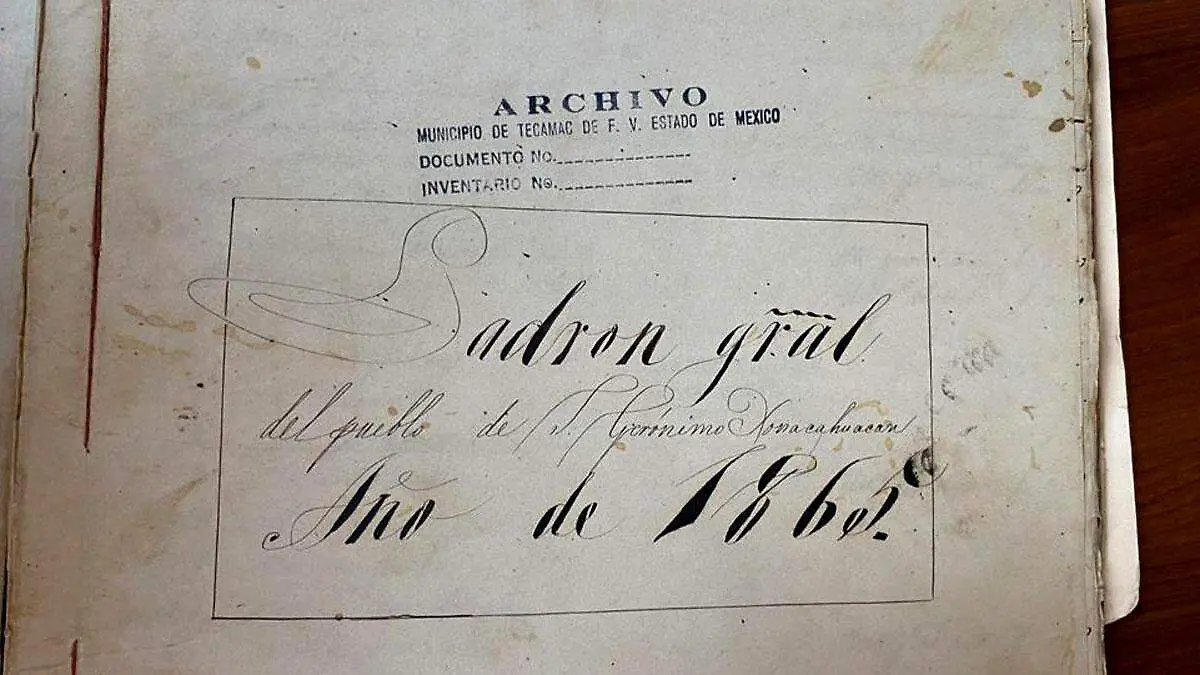 ARCHIVO
MUNICIPIO DE TECAMAC DE F. V. ESTADO DE MEXICO
DOCUMENTO No.
INVENTARIO No.
Padron gr̃al.
del pueblo de S. Gerónimo Xonacahuacan
Año de 1865.